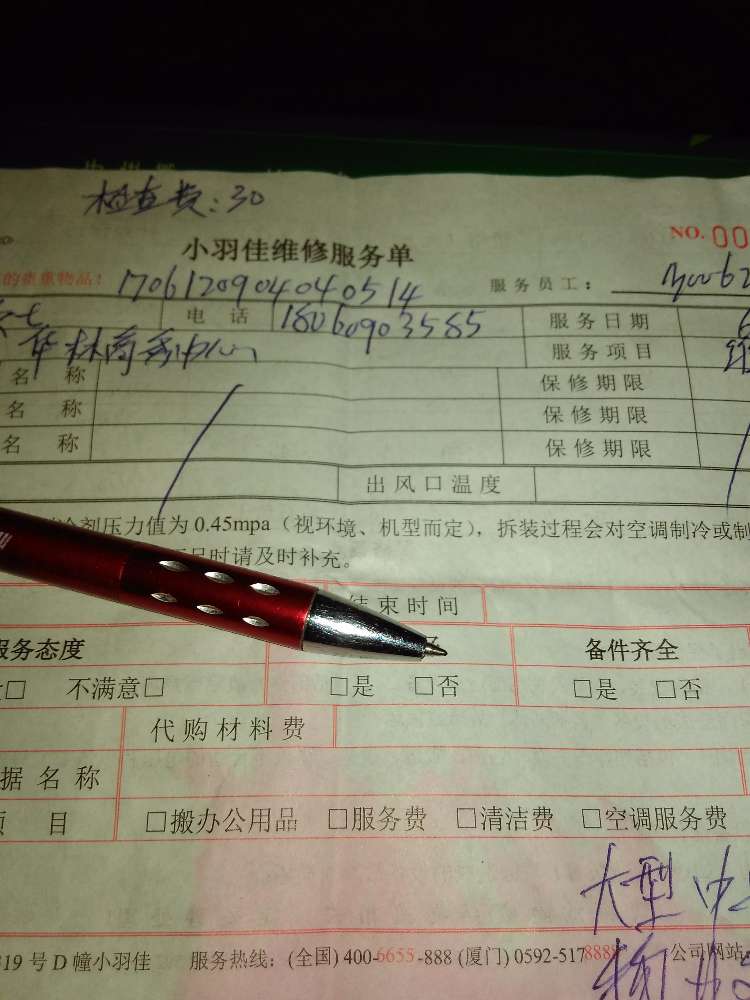 检查费:30
小羽佳维修服务单
NO. 00
物品! 170612090404040514 服务员工:
电话 18060903585 服务日期
华林商务中心 服务项目
名称 保修期限
名称 保修期限
名称 保修期限
出风口温度
冷剂压力值为 0.45mpa(视环境、机型而定),拆装过程会对空调制冷或制
时请及时补充。
结束时间
服务态度 备件齐全
□ 不满意□ □是 □否 □是 □否
代购材料费
据名称
项目 □搬办公用品 □服务费 □清洁费 □空调服务费
大型中
19 号 D 幢小羽佳 服务热线:(全国) 400-6655-888 (厦门) 0592-5178888 公司网站